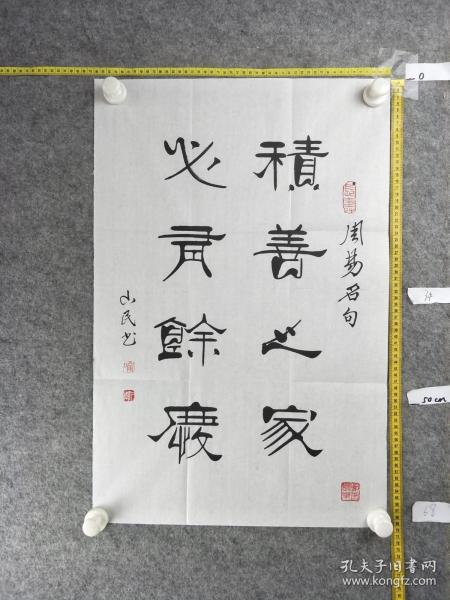 周易名句
積善之家
必有餘慶
山民书
0
34
50cm
68
孔夫子旧书网
www.kongfz.com